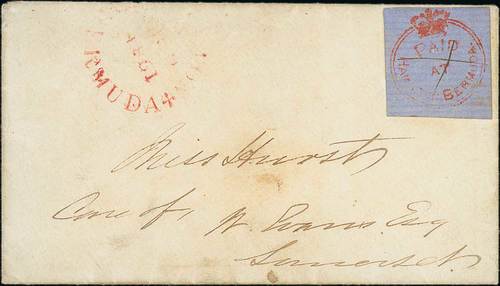 RMUDA
PAID
AT
HA
BERMUDA
Miss Hurst
Care of W. Evans Esq
Somerset.